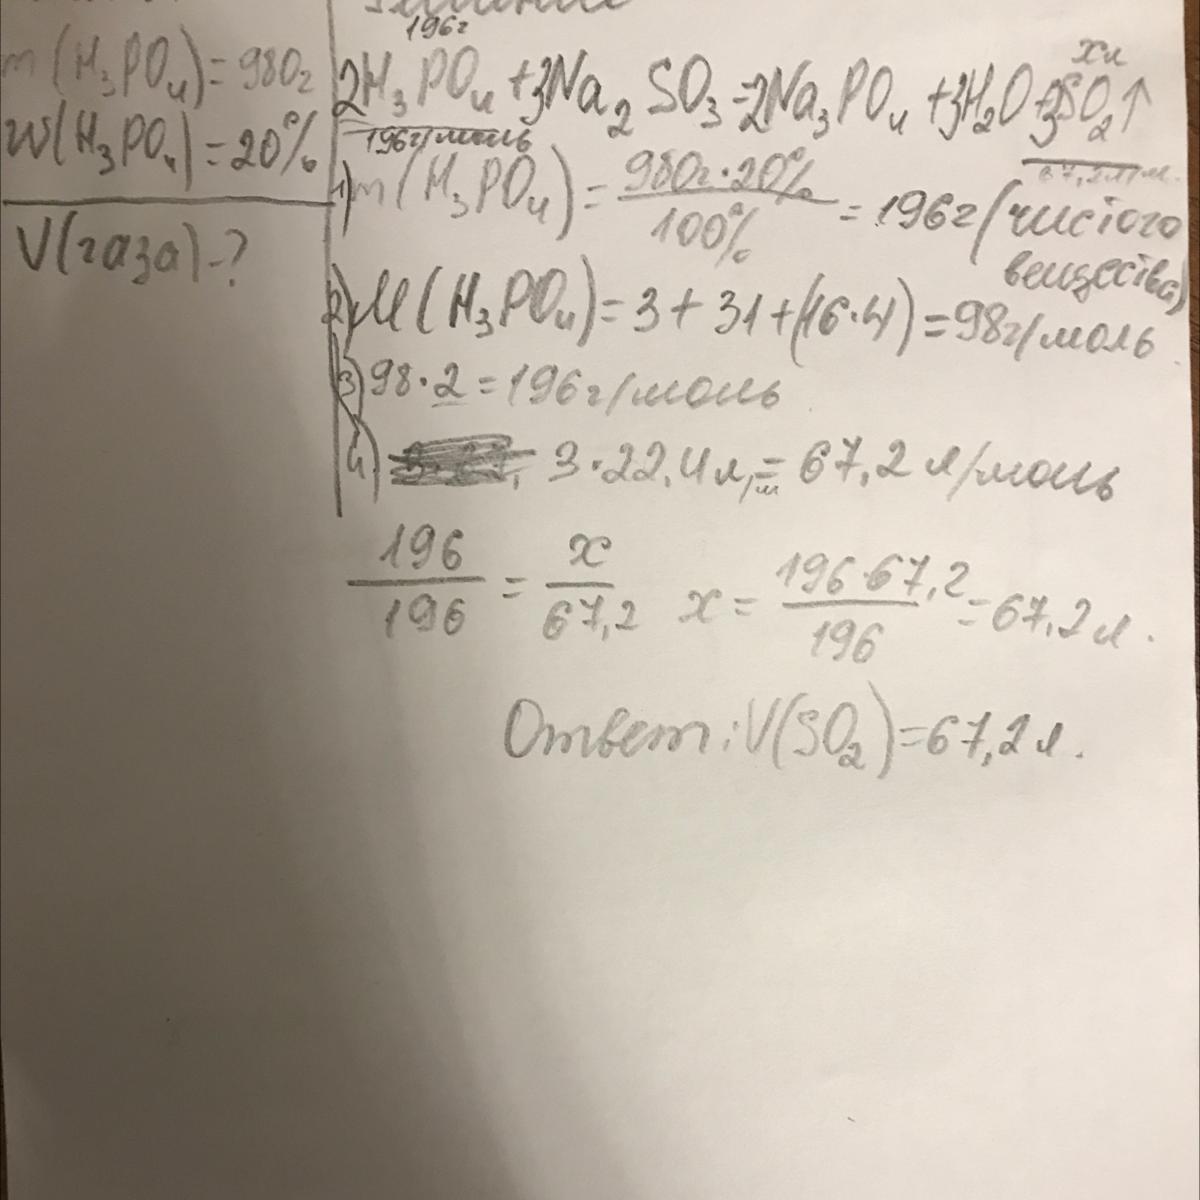 m(H₃PO₄)=980г
w(H₃PO₄)=20%
V(газа)-?
196г
xл
2H₃PO₄+3Na₂SO₃=2Na₃PO₄+3H₂O+3SO₂↑
196г/моль
1)m(H₃PO₄)=980г·20%/100%=196г(чистого
вещества)
2)M(H₃PO₄)=3+31+(16·4)=98г/моль
3)98·2=196г/моль
4) 3·22,4л/м=67,2л/моль
196/196=x/67,2 x=196·67,2/196=67,2л.
Ответ:V(SO₂)=67,2л.